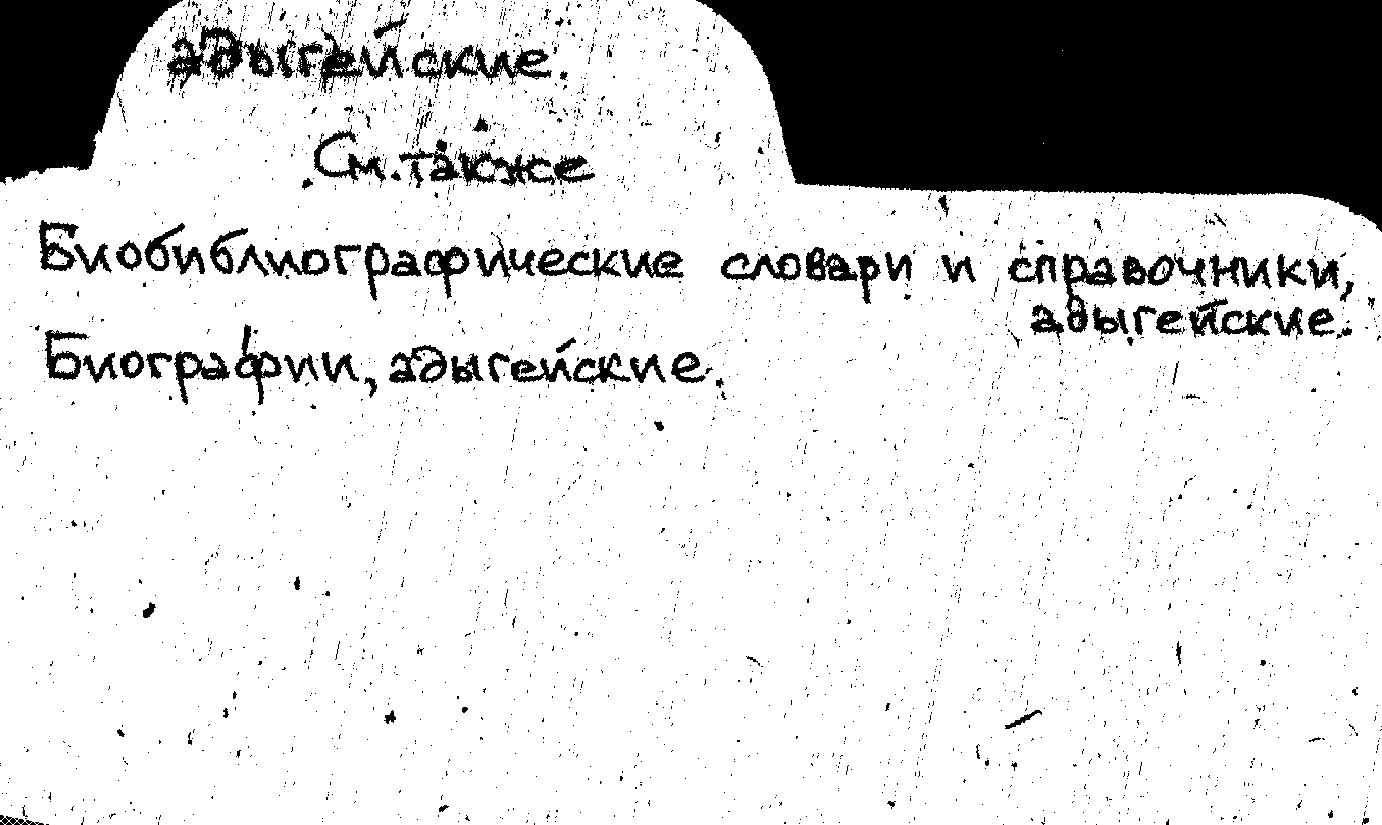 адыгейские.
См. также
Биобиблиографические словари и справочники,
адыгейские.
Биографии, адыгейские.